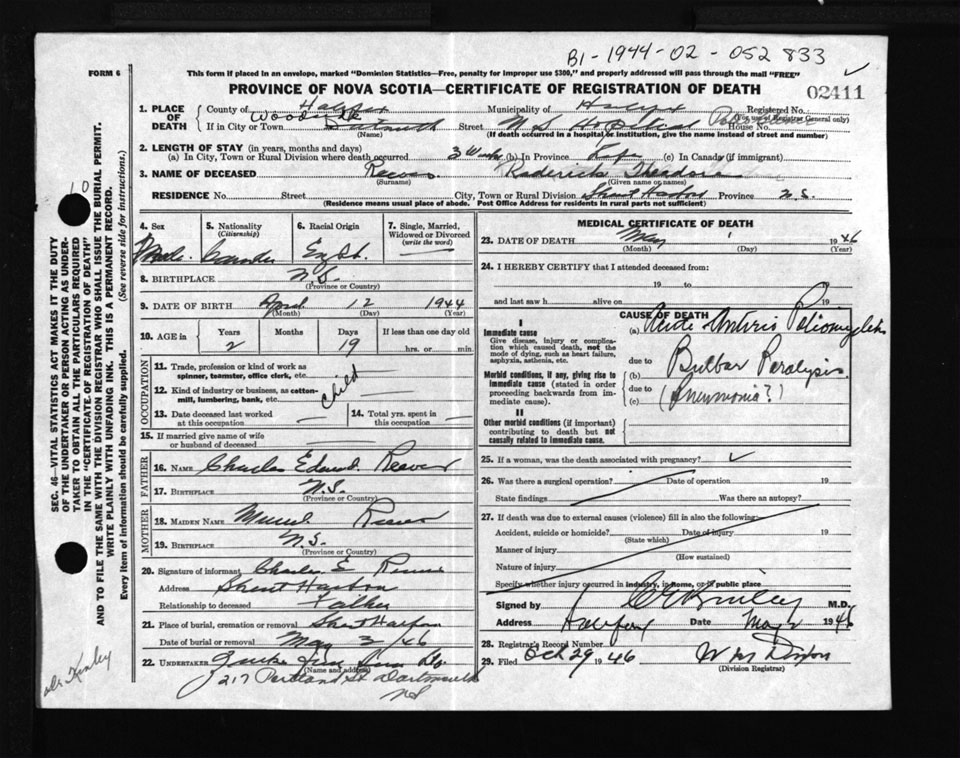 B1-1944-02-052833
FORM 6
This form if placed in an envelope, marked "Dominion Statistics—Free, penalty for improper use $300," and properly addressed will pass through the mail "FREE"
PROVINCE OF NOVA SCOTIA—CERTIFICATE OF REGISTRATION OF DEATH
02411
1. PLACE OF DEATH
County of Halifax Municipality of Halifax Registered No.
(For use of Registrar General only)
If in City or Town Woodside Dartmouth Street N.S. Hospital House No.
(Name) (If death occurred in a hospital or institution, give the name instead of street and number)
2. LENGTH OF STAY (in years, months and days)
(a) In City, Town or Rural Division where death occurred 3 Weeks (b) In Province Life (c) In Canada (if immigrant)
3. NAME OF DECEASED Reeves Roderick Theodore
(Surname) (Given name or names)
RESIDENCE No. Street City, Town or Rural Division Harbour Province N.S.
(Residence means usual place of abode. Post Office Address for residents in rural parts not sufficient)
4. Sex Male
5. Nationality (Citizenship)
6. Racial Origin
7. Single, Married, Widowed or Divorced (write the word) —
8. BIRTHPLACE N.S.
(Province or Country)
9. DATE OF BIRTH April 12 1944
(Month) (Day) (Year)
10. AGE in Years Months Days If less than one day old
2 19 hrs. or min.
OCCUPATION
11. Trade, profession or kind of work as spinner, teamster, office clerk, etc.
Child
12. Kind of industry or business, as cotton-mill, lumbering, bank, etc.
13. Date deceased last worked at this occupation
14. Total yrs. spent in this occupation
15. If married give name of wife or husband of deceased
FATHER
16. NAME Charles Edward Reeves
17. BIRTHPLACE N.S.
(Province or Country)
MOTHER
18. MAIDEN NAME Muriel
19. BIRTHPLACE N.S.
(Province or Country)
20. Signature of informant Charles E
Address Harbour
Relationship to deceased Father
21. Place of burial, cremation or removal
Date of burial or removal May 3/46
22. UNDERTAKER
(Name and address)
217 Portland St Dartmouth
NS
MEDICAL CERTIFICATE OF DEATH
23. DATE OF DEATH May 1 1946
(Month) (Day) (Year)
24. I HEREBY CERTIFY that I attended deceased from:
19 to
and last saw h alive on 19
CAUSE OF DEATH
I
Immediate cause
Give disease, injury or complication which caused death, not the mode of dying, such as heart failure, asphyxia, asthenia, etc.
(a) Acute Poliomyelitis
due to
Morbid conditions, if any, giving rise to immediate cause (stated in order proceeding backwards from immediate cause).
(b) Bulbar Paralysis
due to
(c) (Pneumonia?)
II
Other morbid conditions (if important) contributing to death but not causally related to immediate cause.
25. If a woman, was the death associated with pregnancy?
26. Was there a surgical operation? Date of operation 19
State findings Was there an autopsy?
27. If death was due to external causes (violence) fill in also the following:
Accident, suicide or homicide? Date of injury 19
(State which)
Manner of injury
(How sustained)
Nature of injury
Specify whether injury occurred in industry, in home, or in public place
Signed by M.D.
Address Halifax Date May 2 1946
28. Registrar's Record Number
29. Filed Oct 29 1946 W M Dixon
(Division Registrar)
SEC. 46—VITAL STATISTICS ACT MAKES IT THE DUTY
OF THE UNDERTAKER OR PERSON ACTING AS UNDER-
TAKER TO OBTAIN ALL THE PARTICULARS REQUIRED
IN THE "CERTIFICATE OF REGISTRATION OF DEATH"
AND TO FILE THE SAME WITH THE DIVISION REGISTRAR WHO SHALL ISSUE THE BURIAL PERMIT.
WRITE PLAINLY WITH UNFADING INK. THIS IS A PERMANENT RECORD.
Every item of information should be carefully supplied. (See reverse side for instructions.)